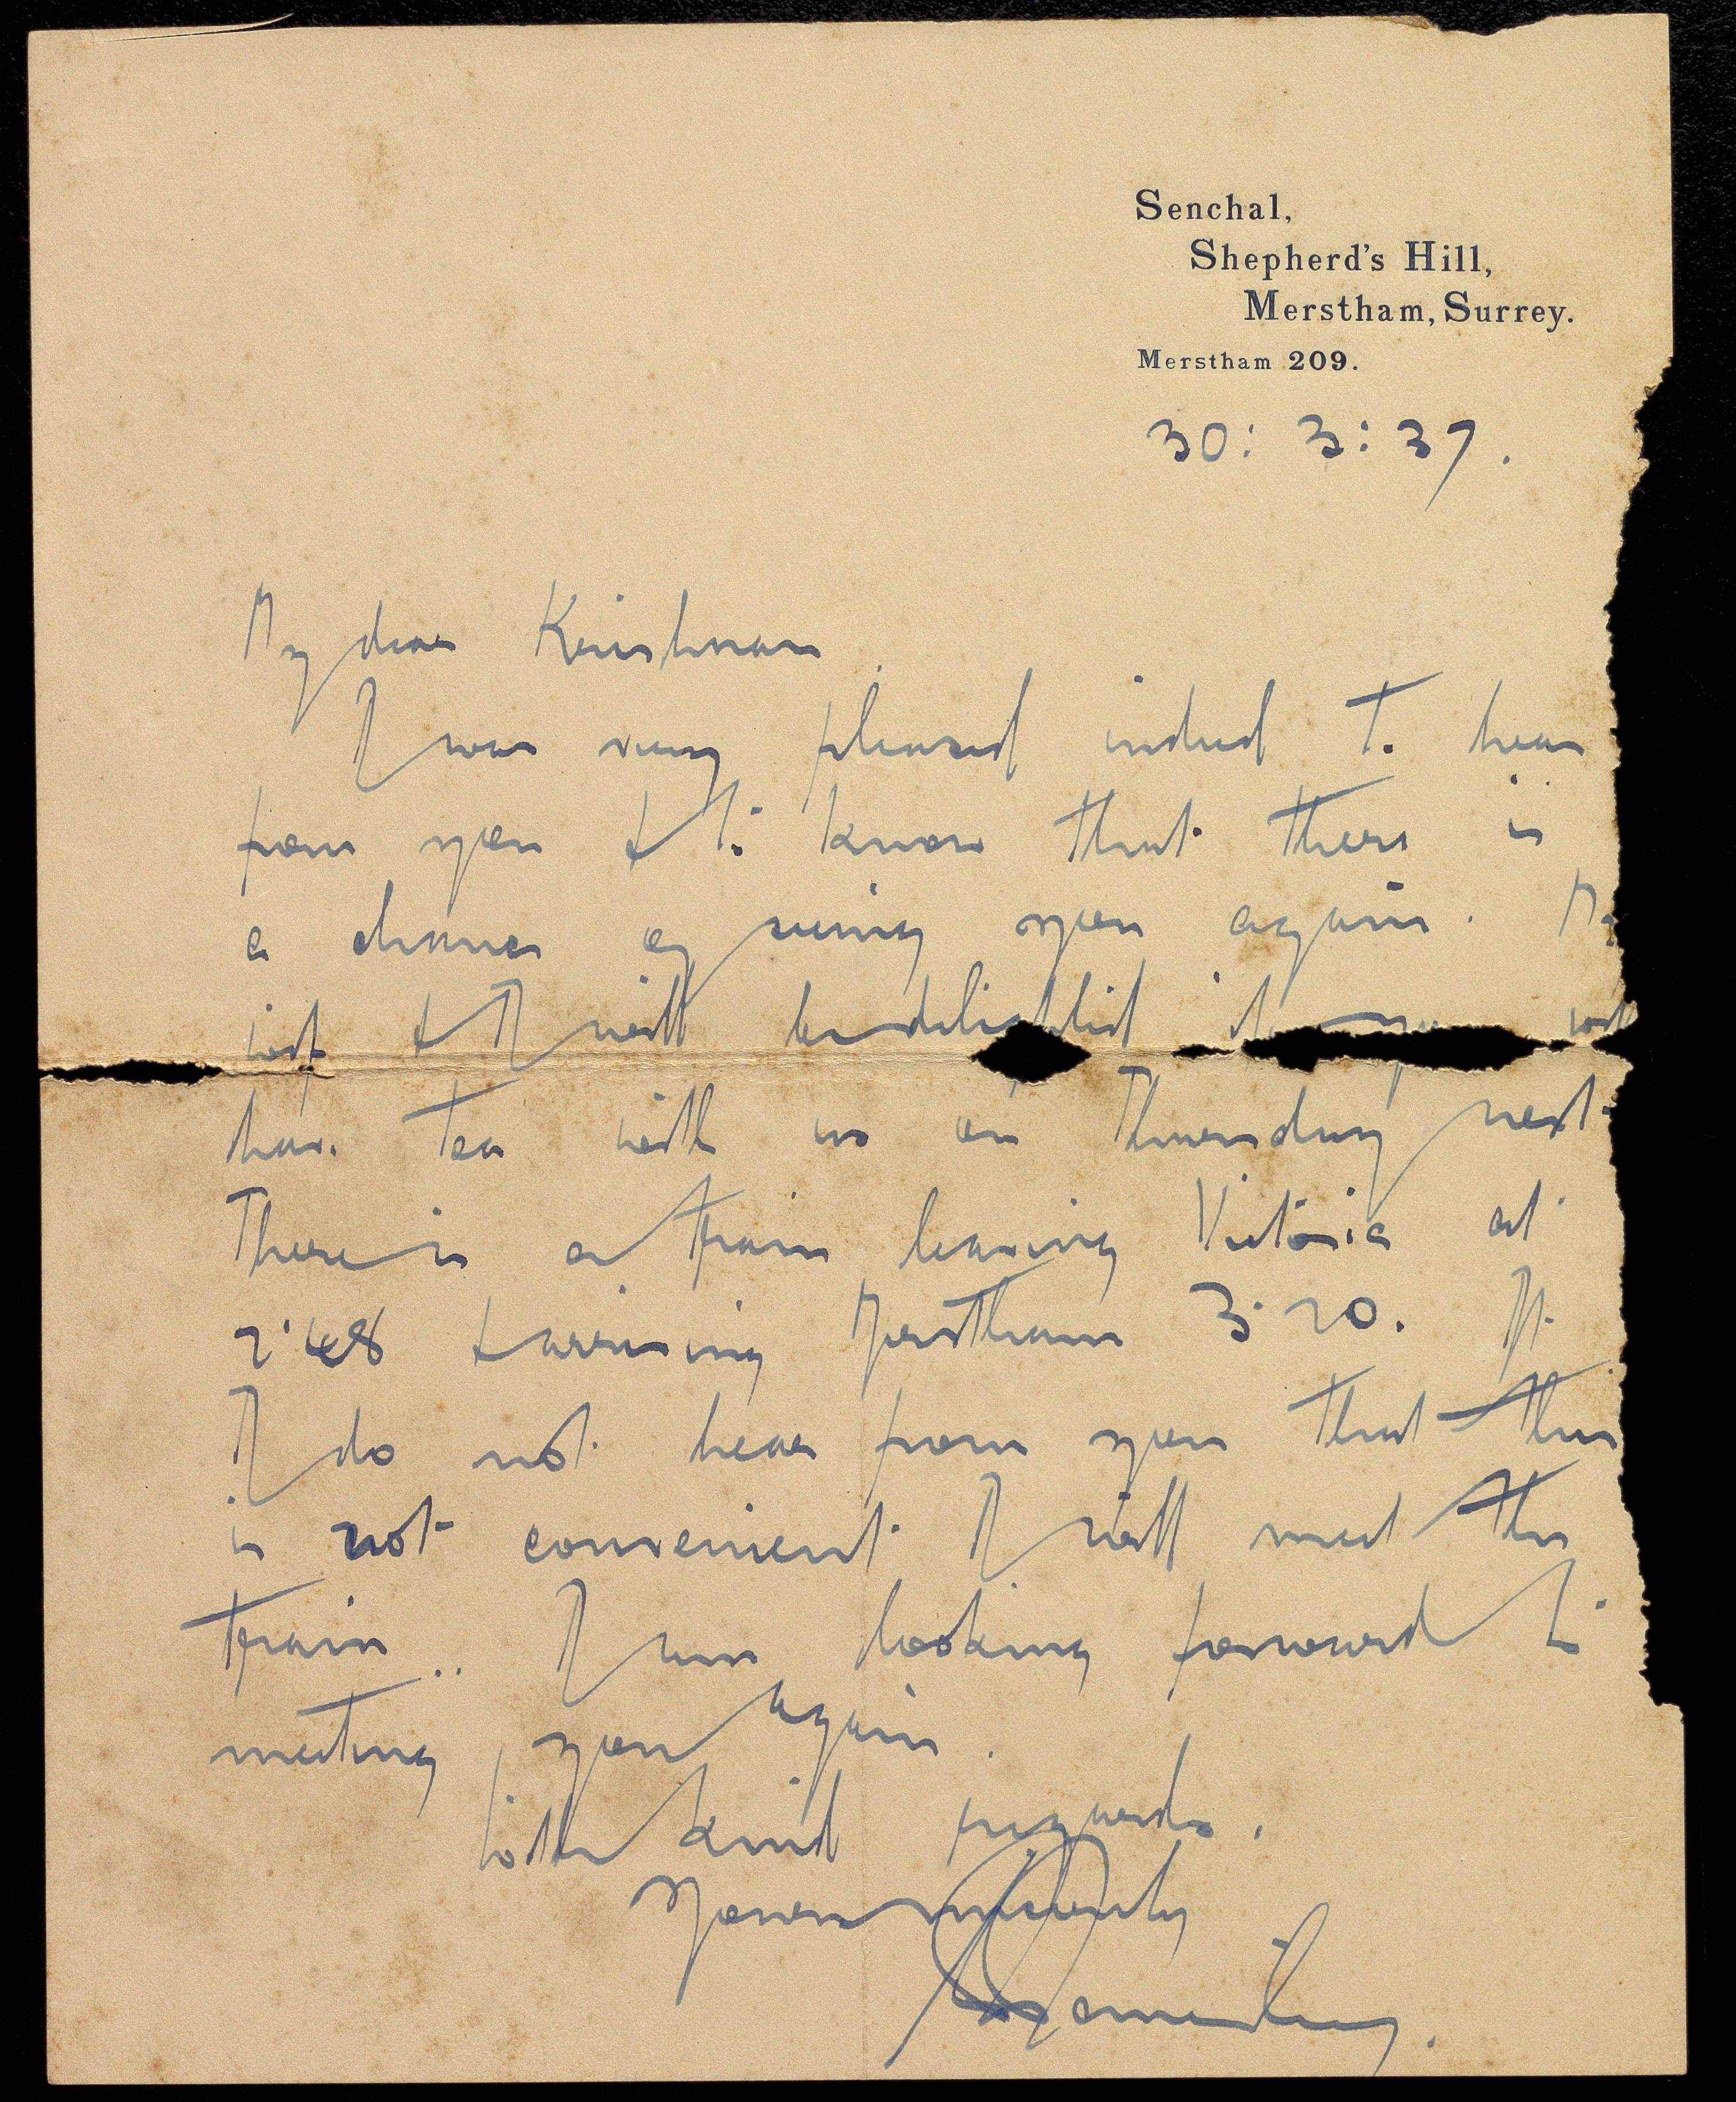 Senchal,
Shepherd's Hill,
Merstham, Surrey.
Merstham 209.
30: 3: 37.
My dear Krishnan
I was very pleased indeed to hear
from you & to know that there is
a chance of seeing you again. My
wife & I will be delighted if you will
have tea with us on Thursday next.
There is a train leaving Victoria at
2.48 & arriving Merstham 3.20. If
I do not hear from you that this
is not convenient I will meet the
train.. I am looking forward to
meeting you again.
With kind regards.
Yours sincerely